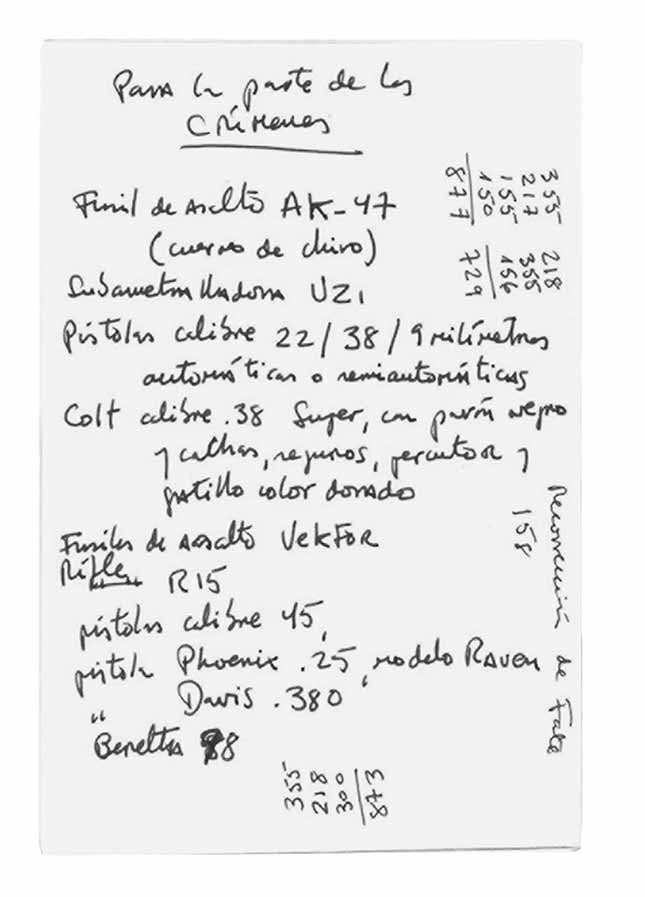 Para la parte de los
CRÍMENES
Fusil de asalto AK-47
(cuerno de chivo)
Subametralladora UZI
Pistolas calibre 22/38/9 milímetros
automáticas o semiautomáticas
Colt calibre .38 Super, con pavón negro
y cachas, seguros, percutor y
gatillo color dorado
Fusiles de asalto VEKTOR
Rifle R15
pistolas calibre 45,
pistola Phoenix .25, modelo RAVEN
" Davis .380
Beretta 98
355
217
155
150
877
218
355
156
729
Resurrección de Fate
158
355
218
300
873